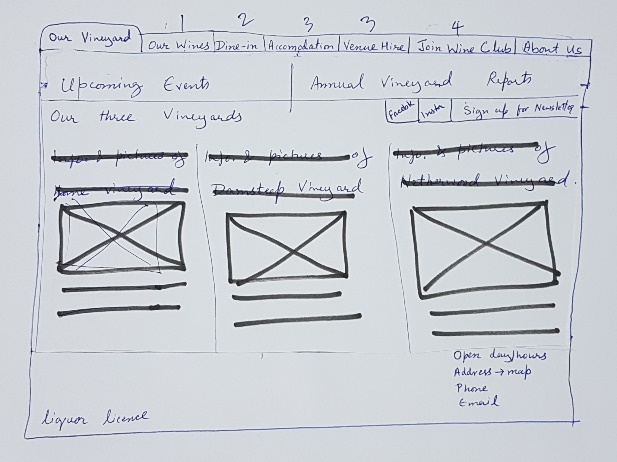 1 2 3 3 4
Our Vineyard Our Wines Dine-in Accomodation Venue Hire Join Wine Club About Us
Upcoming Events Annual Vineyard Reports
Our three Vineyards Facebk Insta Sign up for Newsletter
Infor & pictures of Infor & pictures of Info. & pictures of
vineyard Damsteep Vineyard Netherwood Vineyard.
Open day/hours
Address → map
Phone
Email
liquor licence